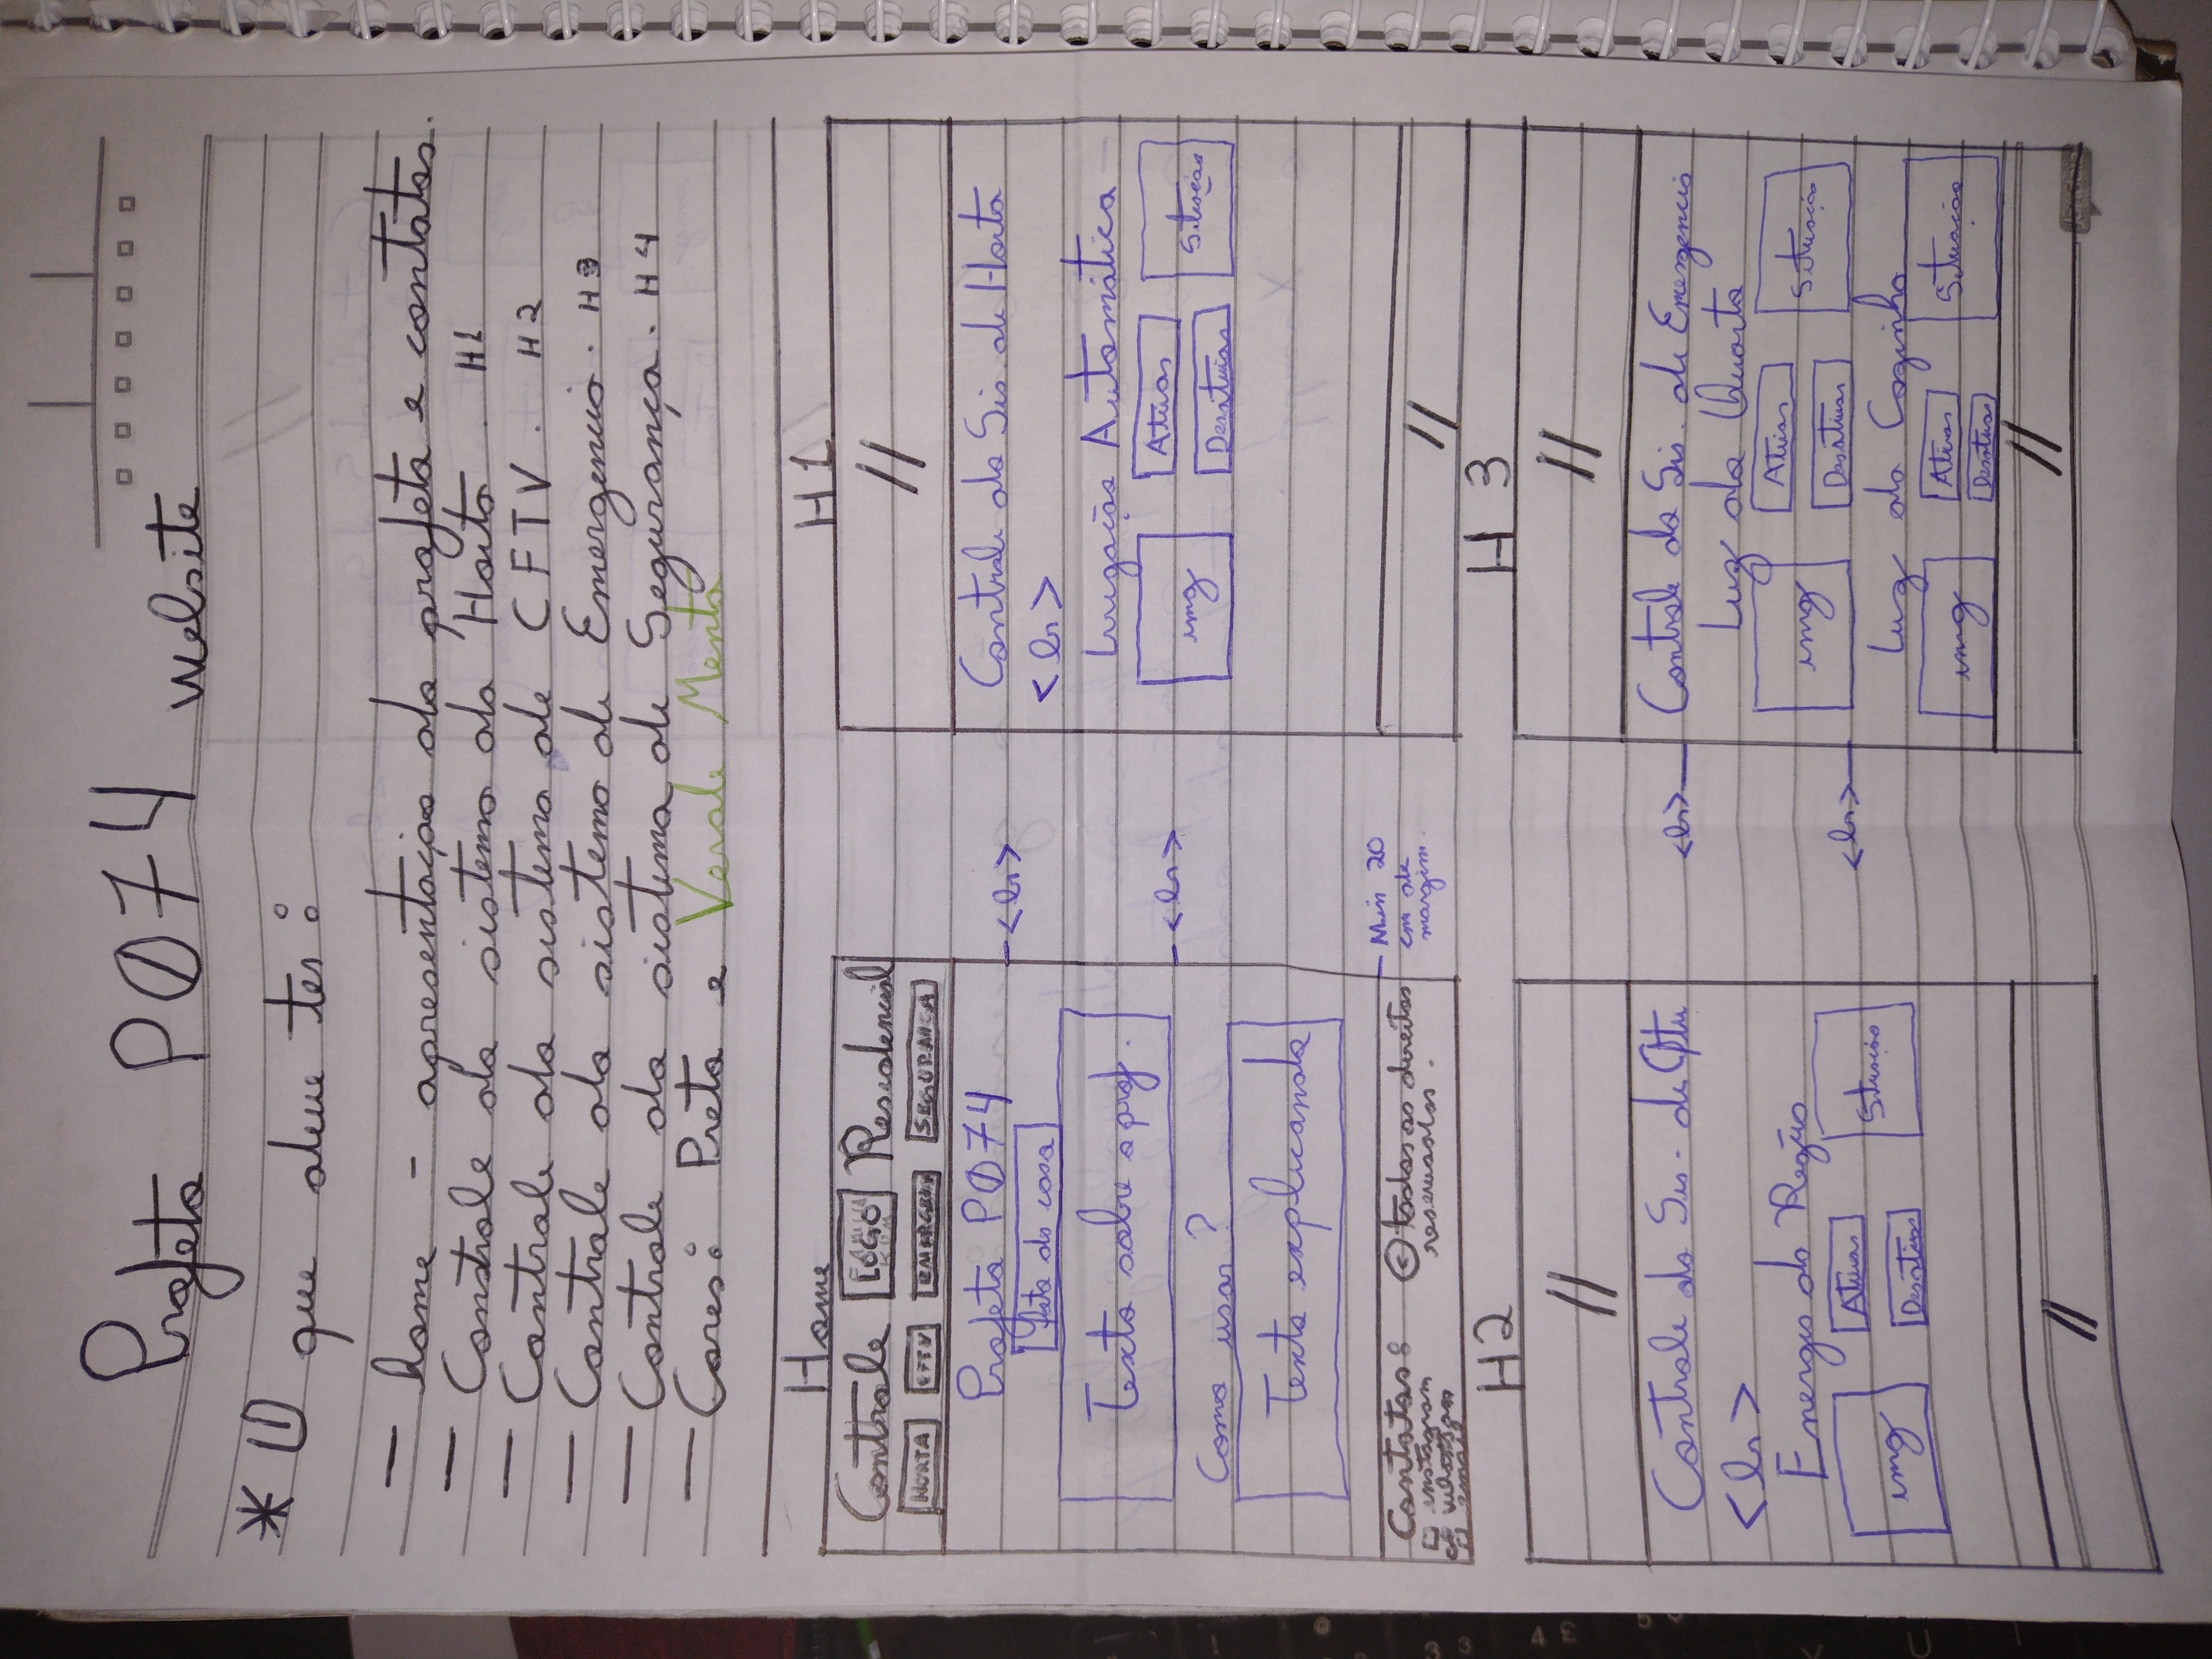 Projeto P074 Website
* O que deve ter:
- home - apresentação do projeto e contatos.
- Controle do sistema da Horta. H1
- Controle do sistema de CFTV. H2
- Controle do sistema de Emergencia. H3
- Controle do sistema de Segurança. H4
- Cores: Preto e Verde Menta
Home
Controle LOGO Residencial
HORTA CFTV EMERGEN SEGURANÇA
Projeto P074
<br>
Foto da casa
Texto sobre o proj.
<br>
Como usar?
Texto explicando
Contatos:
instagram
whatzapp
email
© todos os direitos
reservados.
Min 20
cm de
margem.
H1
//
Controle do Sis. de Horta
<br>
Irrigação Automática
img
Ativar
Desativar
Situação
//
H2
//
Controle do Sis. de Cftv
<br>
Energia da Região
img
Ativar
Desativar
Situação
//
H3
//
Controle do Sis. de Emergencia
<br>
Luz do Quarto
img
Ativar
Desativar
Situação
<br>
Luz da Cozinha
img
Ativar
Desativar
Situação
//